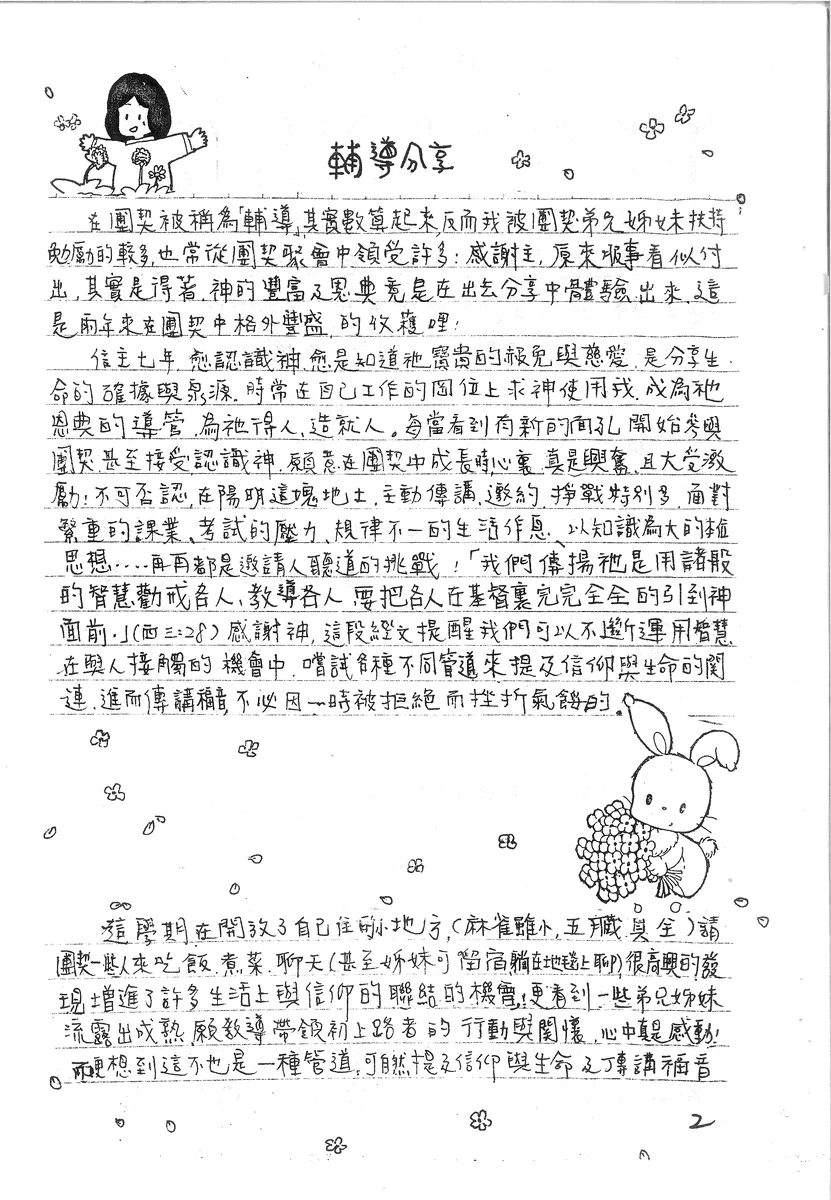 輔導分享
在團契被稱為「輔導」,其實數算起來,反而我被團契弟兄姊妹扶持
勉勵的較多,也常從團契聚會中領受許多:感謝主,原來服事看似付
出,其實是得著,神的豐富及恩典竟是在出去分享中體驗出來,這
是兩年來在團契中格外豐盛,的收穫哩!
信主七年,愈認識神,愈是知道祂寶貴的赦免與慈愛,是分享生
命的確據與泉源,時常在自己工作的岡位上求神使用我,成為祂
恩典的導管,為祂得人、造就人。每當看到有新的面孔開始參與
團契,甚至接受認識神,願意在團契中成長時,心裏真是興奮,且大受激
勵!不可否認,在陽明這塊地土,主動傳講、邀約,掙戰特別多,面對
繁重的課業、考試的壓力、規律不一的生活作息、以知識為大的本位
思想....再再都是邀請人聽道的挑戰!「我們傳揚祂是用諸般
的智慧勸戒各人、教導各人,要把各人在基督裏完完全全的引到神
面前.」(西三:28)感謝神,這段經文提醒我們可以不斷運用智慧
在與人接觸的機會中,嚐試各種不同管道來提及信仰與生命的関
連,進而傳講福音,不必因一時被拒絕而挫折氣餒的.
這學期在開放了自己住的小地方,(麻雀雖小,五臟具全)請
團契一些人來吃飯,煮菜,聊天(甚至姊妹可陪宿躺在地毯上聊)很高興的發
現增進了許多生活上與信仰的聯結的機會!更看到一些弟兄姊妹
流露出成熟,願教導帶領初上路者的行動與関懷,心中真是感動!
而更想到這不也是一種管道,可自然提及信仰與生命及傳講福音
2